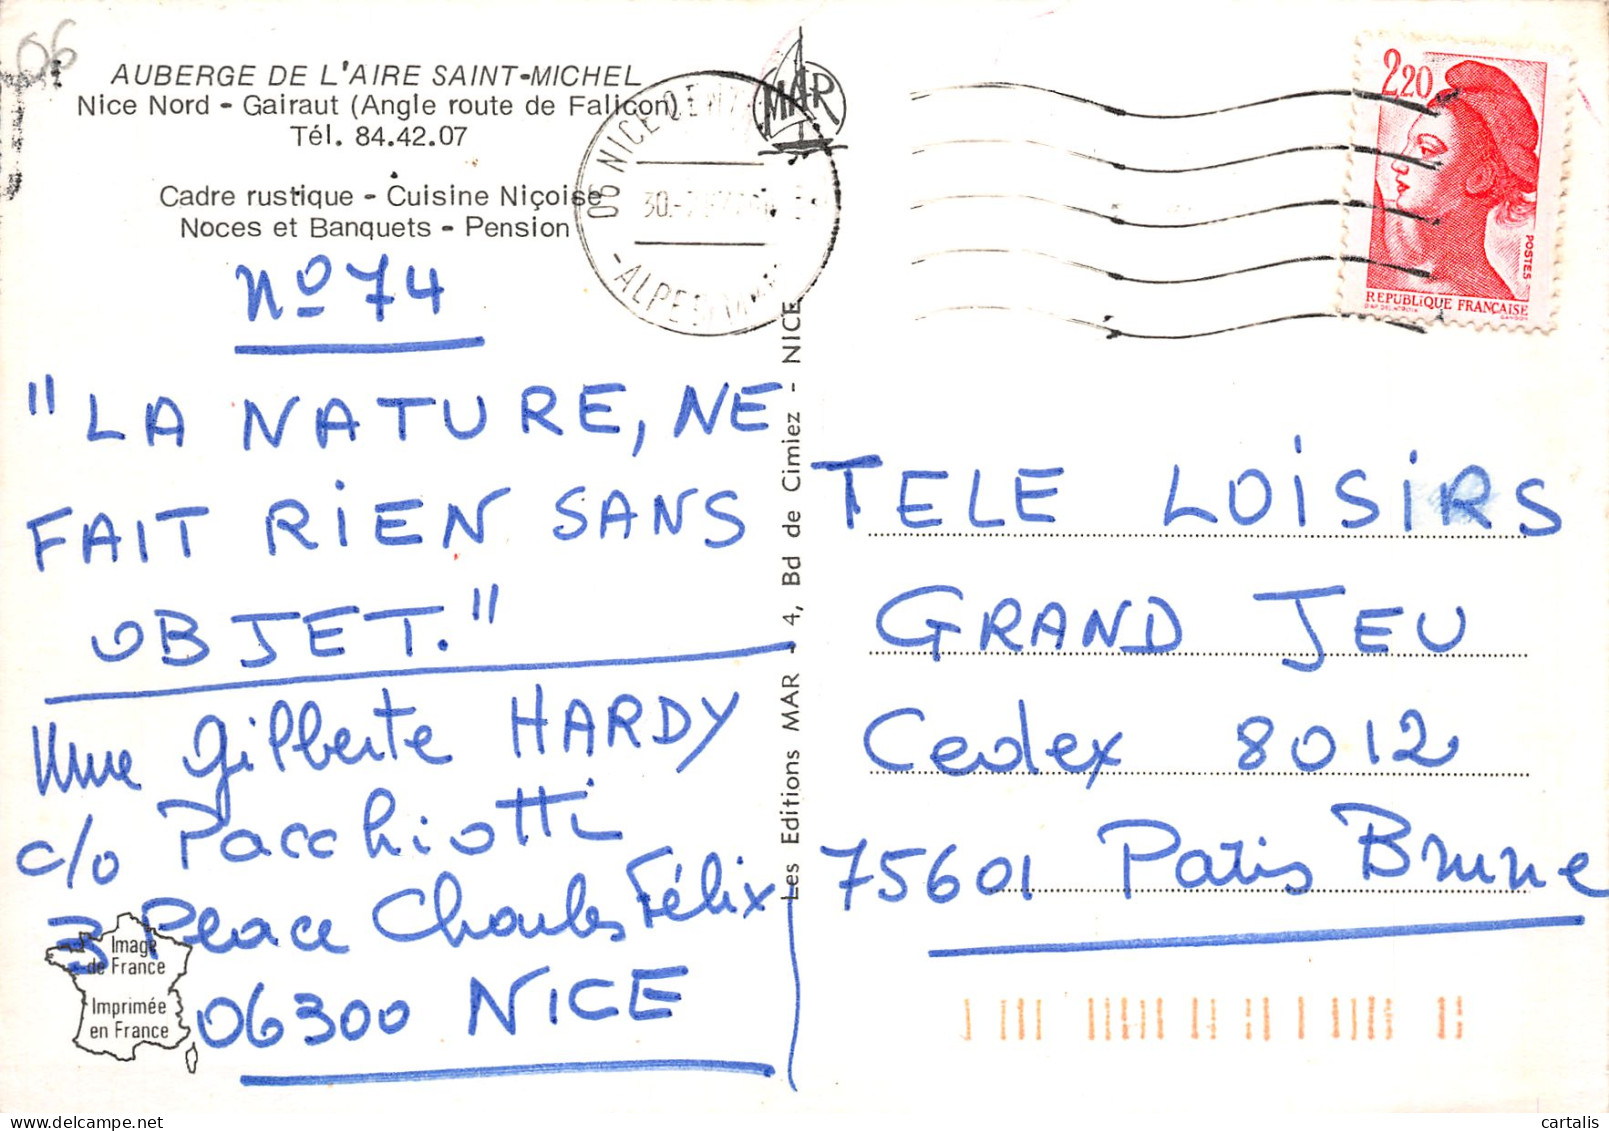 06
AUBERGE DE L'AIRE SAINT-MICHEL
Nice Nord - Gairaut (Angle route de Falicon)
Tél. 84.42.07
Cadre rustique - Cuisine Niçoise
Noces et Banquets - Pension
MAR
06 NICE
30.
2,20
POSTES
REPUBLIQUE FRANÇAISE
Nº 74
"LA NATURE, NE
FAIT RIEN SANS
OBJET."
Mme Gilberte HARDY
c/o Pacchiotti
3 Place Charles Félix
06300 NICE
Image
de France
Imprimée
en France
Les Editions MAR - 4, Bd de Cimiez - NICE
TELE LOISIRS
GRAND JEU
Cedex 8012
75601 Paris Brune
cartalis